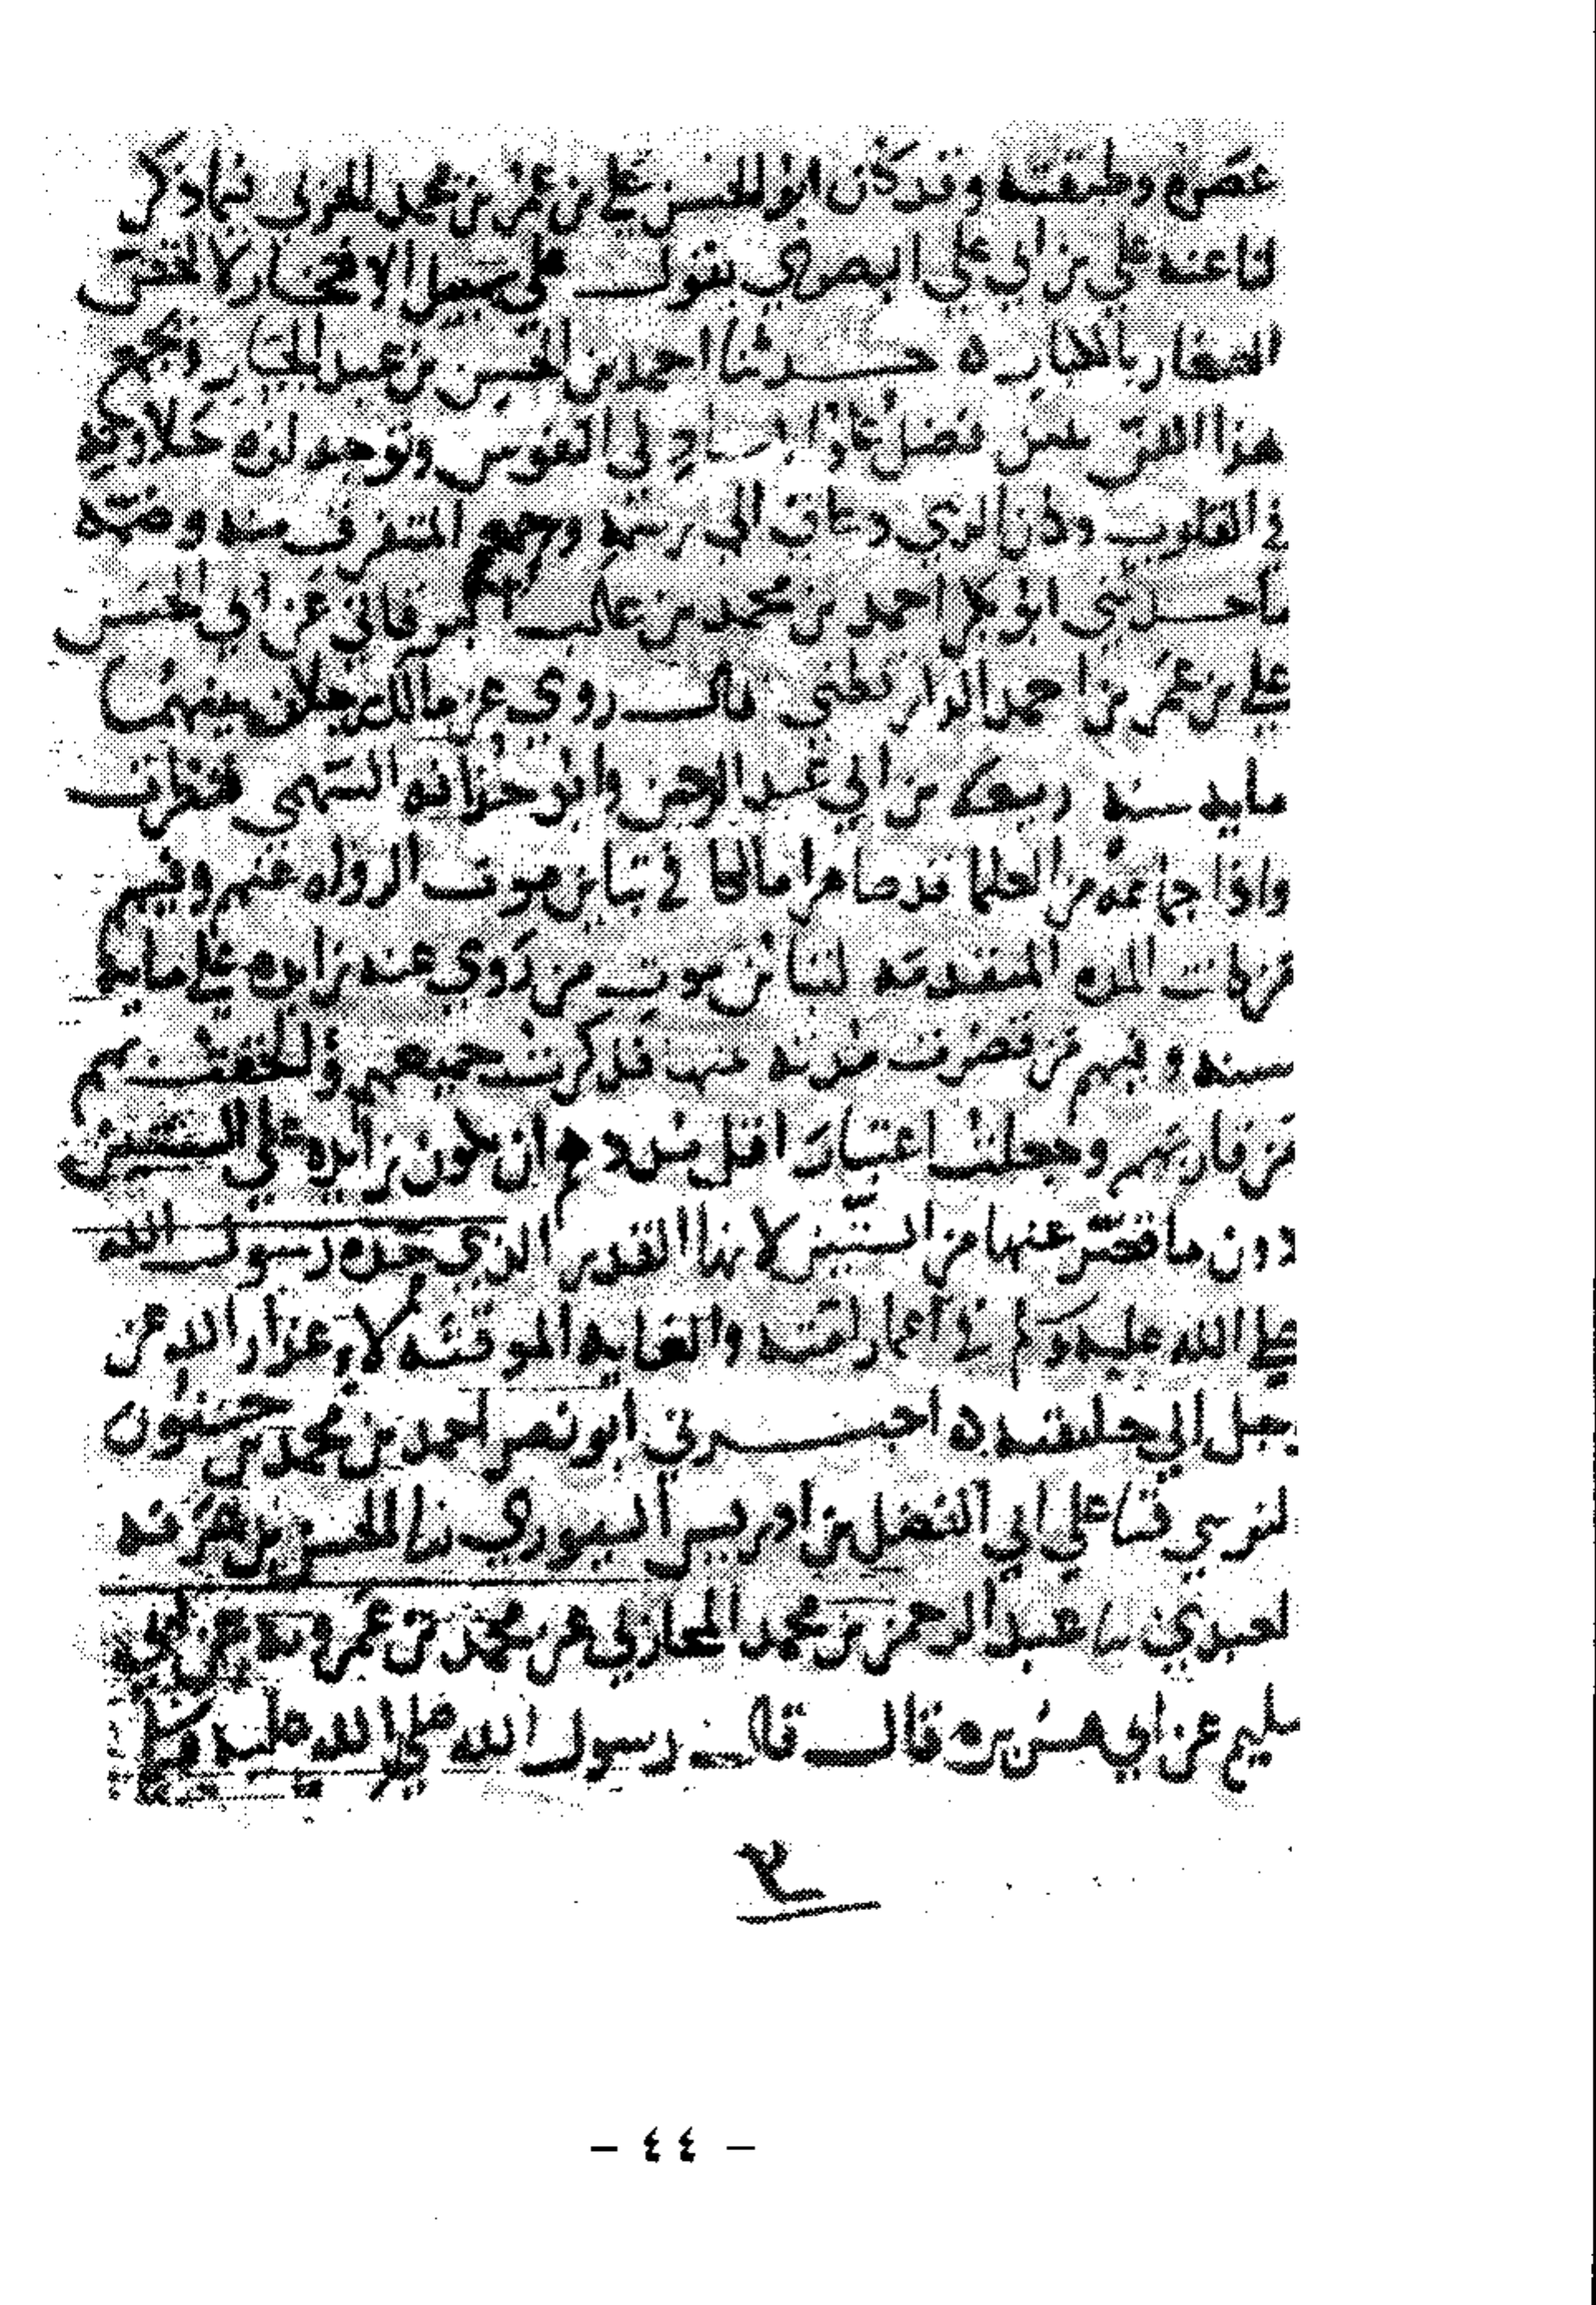 عصره وطبقته وقد كان ابو الحسن علي بن عمر بن محمد الحربي فيما ذكر
لنا عنه علي بن ابي علي البصري يقول على سبيل الافتخار لالحقن
الصغار بالكبار ه حدثنا احمد بن الحسن بن عبد الجبار ويجمع
هذا الفن فضل علو الاسناد في النفوس وتوجد لذه حلاوته
في القلوب وكان الذي دعاني الى رسمه وجمع المتفرق منه وضمه
ما حدثني ابو بكر احمد بن محمد بن غالب البرقاني عن ابي الحسن
علي بن عمر بن احمد الدارقطني قال روى عن مالك رجلان بينهما
مايه سنه ربيعه بن ابي عبد الرحمن وابو حذافه السهمي فنظرت
واذا جماعه من العلما قد ضاهوا مالكا في تباين موت الرواه عنهم وفيهم
من كانت المده المتقدمه لتباين موت من روى عنه زايده على مايه
سنه وفيهم من قصرت مدته عنها فذكرت جميعهم والحقت بهم
من قاربهم وجعلت اعتبار اقل ان يكون زايده على الستين
دون ما قصر عنها من السنين لانها القدر الذي حده رسول الله
صلى الله عليه وسلم في اعمار امته والغايه الموقته لاعذار الله عز
وجل الي خليقته ه اخبرني ابو نصر احمد بن محمد بن حسنون
النرسي قثنا علي ابي الفضل بن ادريس الستوري نا الحسن بن عرفه
العبدي نا عبد الرحمن بن محمد المحاربي عن محمد بن عمرو عن ابي
سليم عن ابي هريره قال قال رسول الله صلى الله عليه وسلم
٢
- ٤٤ -